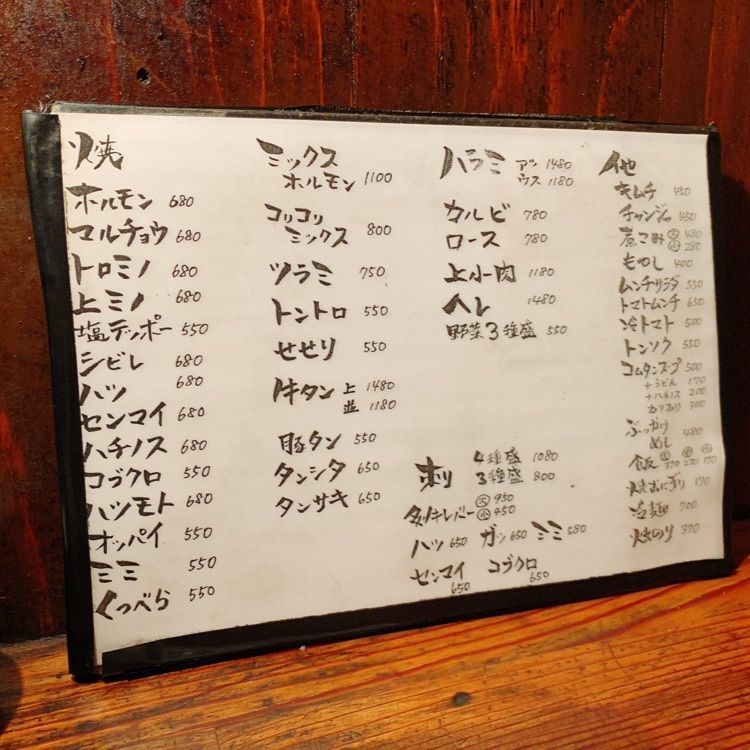 焼
ホルモン 680
マルチョウ 680
トロミノ 680
上ミノ 680
塩テッポー 550
シビレ 680
ハツ 680
センマイ 680
ハチノス 680
コブクロ 550
ハツモト 680
オッパイ 550
ミミ 550
くつべら 550
ミックス
ホルモン 1100
コリコリ
ミックス 800
ツラミ 750
トントロ 550
せせり 550
牛タン 上 1480
並 1180
豚タン 550
タンシタ 650
タンサキ 650
ハラミ アツ 1480
ウス 1180
カルビ 780
ロース 780
上小肉 1180
ヘレ 1480
野菜3種盛 550
刺 4種盛 1080
3種盛 800
炙りキモレバー 大 950
小 450
ハツ 650 ガツ 650 ミミ 580
センマイ 650 コブクロ 650
他
キムチ 450
チャンジャ 450
煮こみ 大 480
小 280
もやし 400
ムンチサラダ 550
トマトムンチ 650
冷トマト 500
トンソク 550
コムタンスープ 500
+うどん 170
+ハチノス 200
ぶっかけ
めし 480
飯 大 370 中 270 小 170
焼おにぎり 170
冷麺 700
焼のり 370